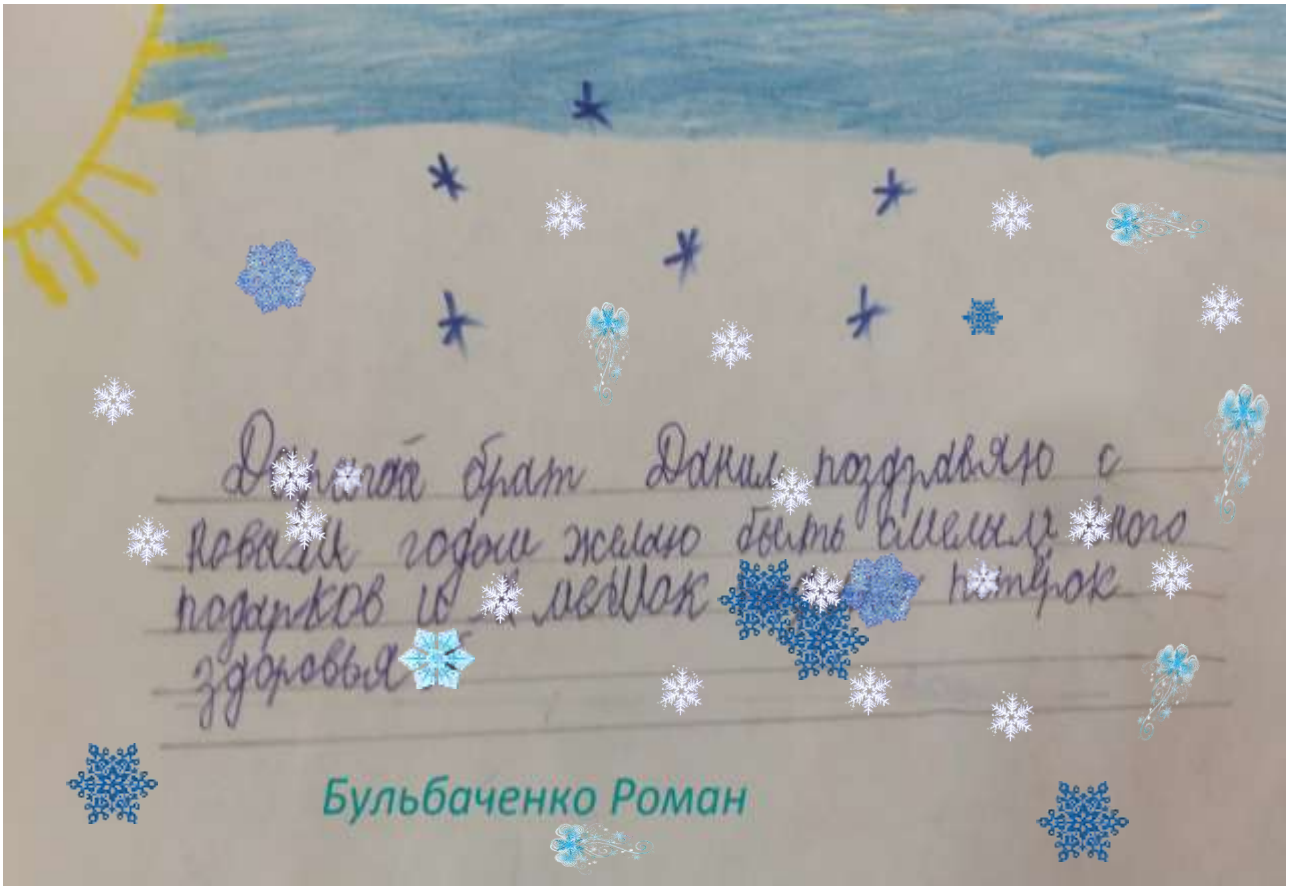 брат Данил поздравяю с
новым годом желаю быть смелым
подарков и мешок пятёрок
здоровья
Бульбаченко Роман